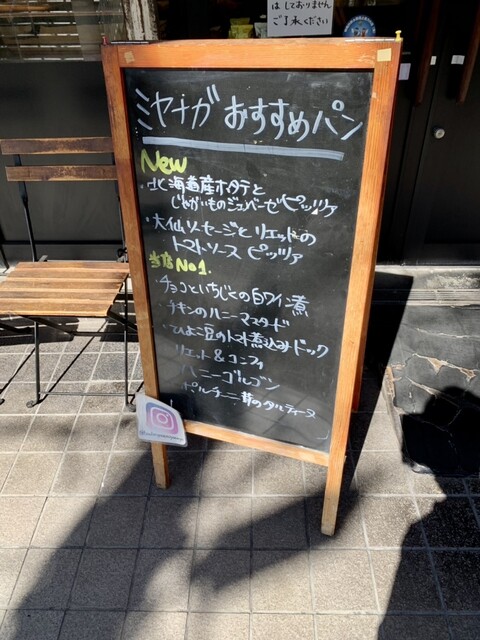 はしておりません
ご了承ください
ミヤナガ おすすめパン
New
・北海道産ホタテと
じゃがいものジェノベーゼピッツァ
・大仙ソーセージとリエットの
トマトソース ピッツァ
当店No1.
・チョコといちじくの白ワイン煮
チキンのハニーマスタード
・ひよこ豆のトマト煮込みドック
リエット&コンフィ
ハニーゴルゴン
ポルチーニ茸のタルティーヌ